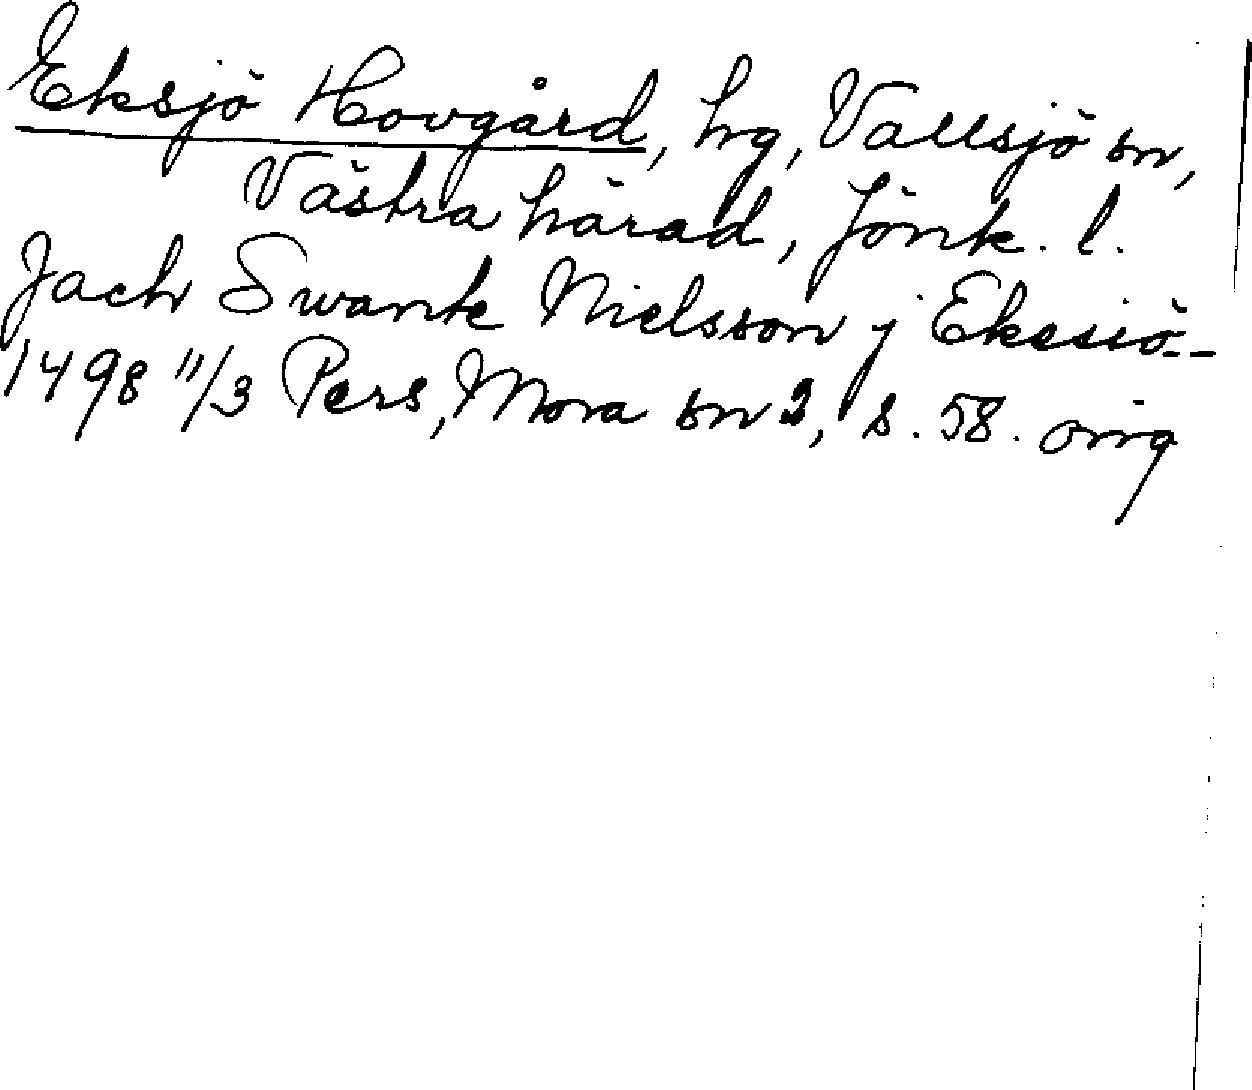 Eksjö Hovgård, hg, Vallsjö sn,
Västra härad, Jönk. l.
Jach Swante Nielsson j Ekesiö--
1498 11/3 Pers, Mora sn 2, s. 58. orig